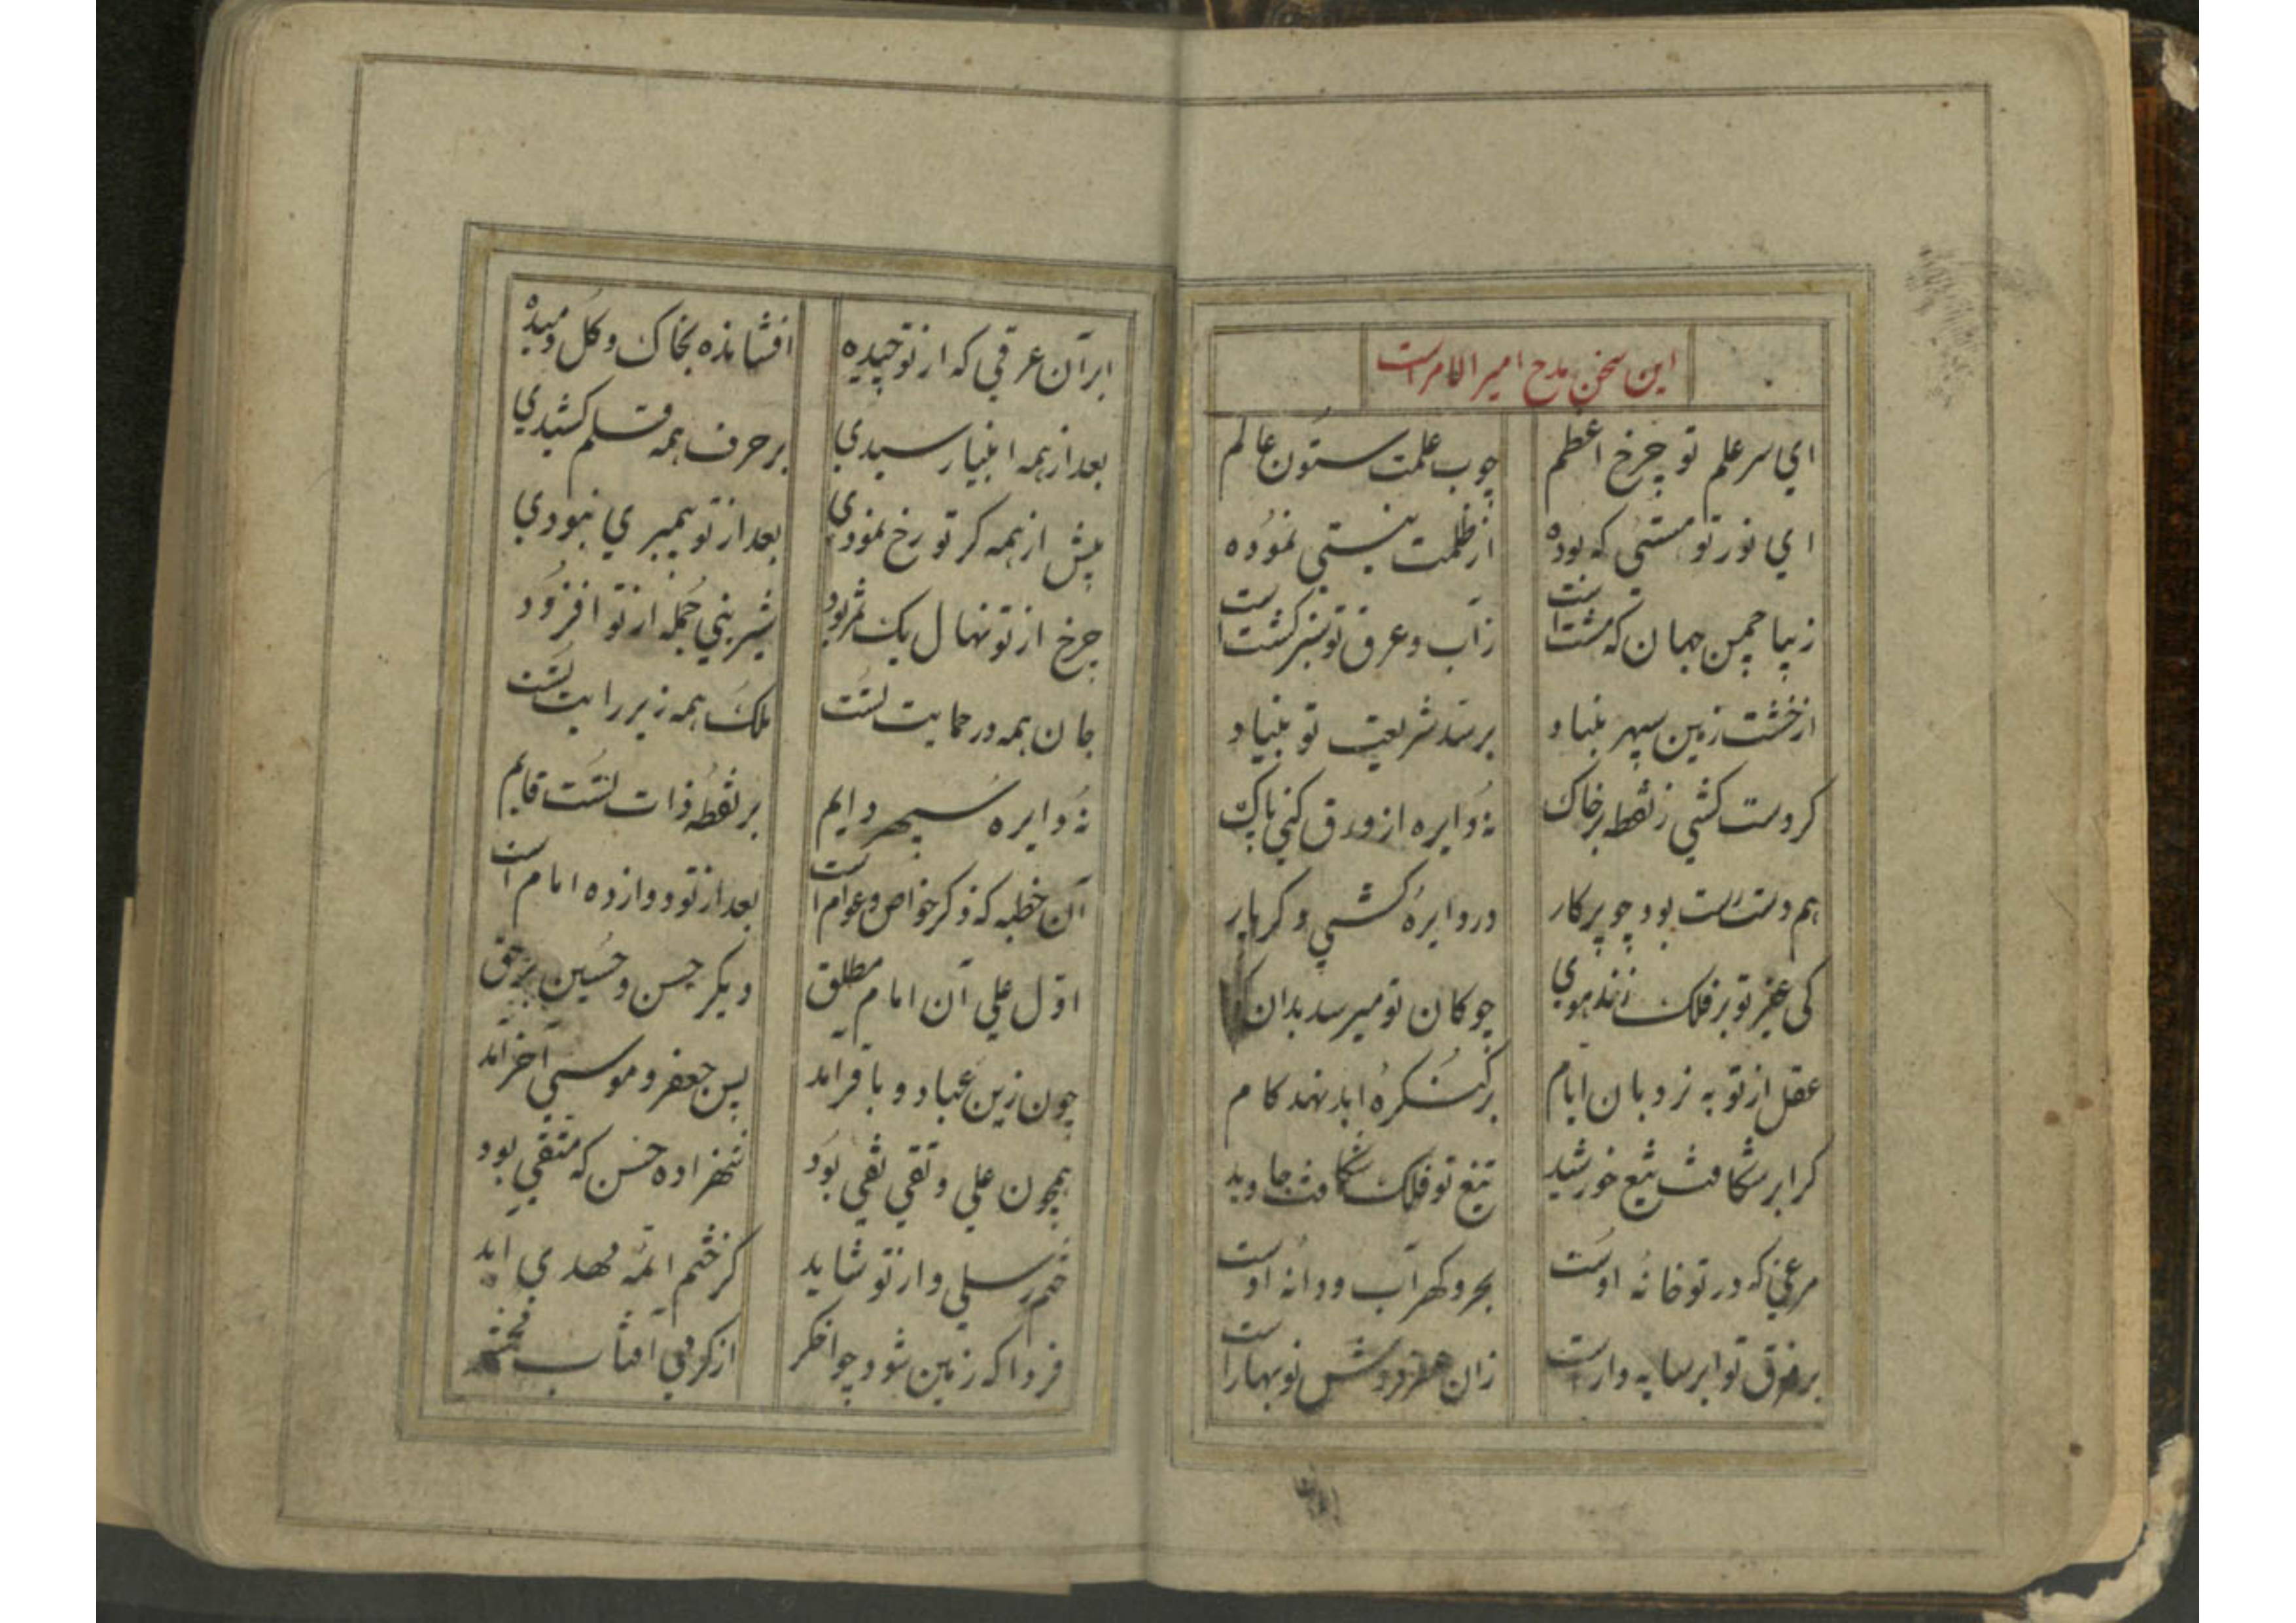 این سخن مدح امیر الامراست
ای سر علم تو چرخ اعظم چوب علمت ستون عالم
ای نور تو هستیی که بوده از ظلمت نیستی نموده
زیبا چمن جهان که هشت است زآب و عرق تو سبز کشت است
از خشت زمین سپهر بنیاد بر سد شریعت تو بنیاد
کر دست کشی ز نقطه بر خاک نه دایره از ورق کنی پاک
هم دست تست بود چو پرکار در دایره کشی و کر بار
کی غیر تو بر فلک زند هوی چوکان تو میرسد بدان
عقل از تو به نردبان ایام بر کنکره ابد نهد کام
کر ابر شکافت تیغ خورشید تیغ تو فلک شکافت جاوید
مرغی که در تو خانه اوست بحر و کهر آب و دانه اوست
بر فرق تو ابر سایه دار است زان در فشش نوبهار است
ابر آن عرقی که از تو چیده افشانده بخاک و کل دمیده
بعد از همه انبیا رسیدی بر حرف همه قلم کشیدی
پیش از همه کر تو رخ نمودی بعد از تو پیمبری نبودی
چرخ از تو نهال یک ثمر بود شیرینی جمله از تو افزود
جان همه در حمایت تست ملک همه زیر رایت تست
نه دایره سپهر دایم بر نقطه ذات تست قایم
آن خطبه که ذکر خواص و عوام است بعد از تو دوازده امام است
اول علی آن امام مطلق دیکر حسن و حسین بر حق
چون زین عباد و باقر آمد پس جعفر و موسی آخر آمد
همچون علی و تقی نقی بود شهزاده حسن که متقی بود
ختم رسلی و از تو شاید کز ختم ائمه مهدی آید
فردا که زمین شود چو اخکر از کرمی آفتاب محشر